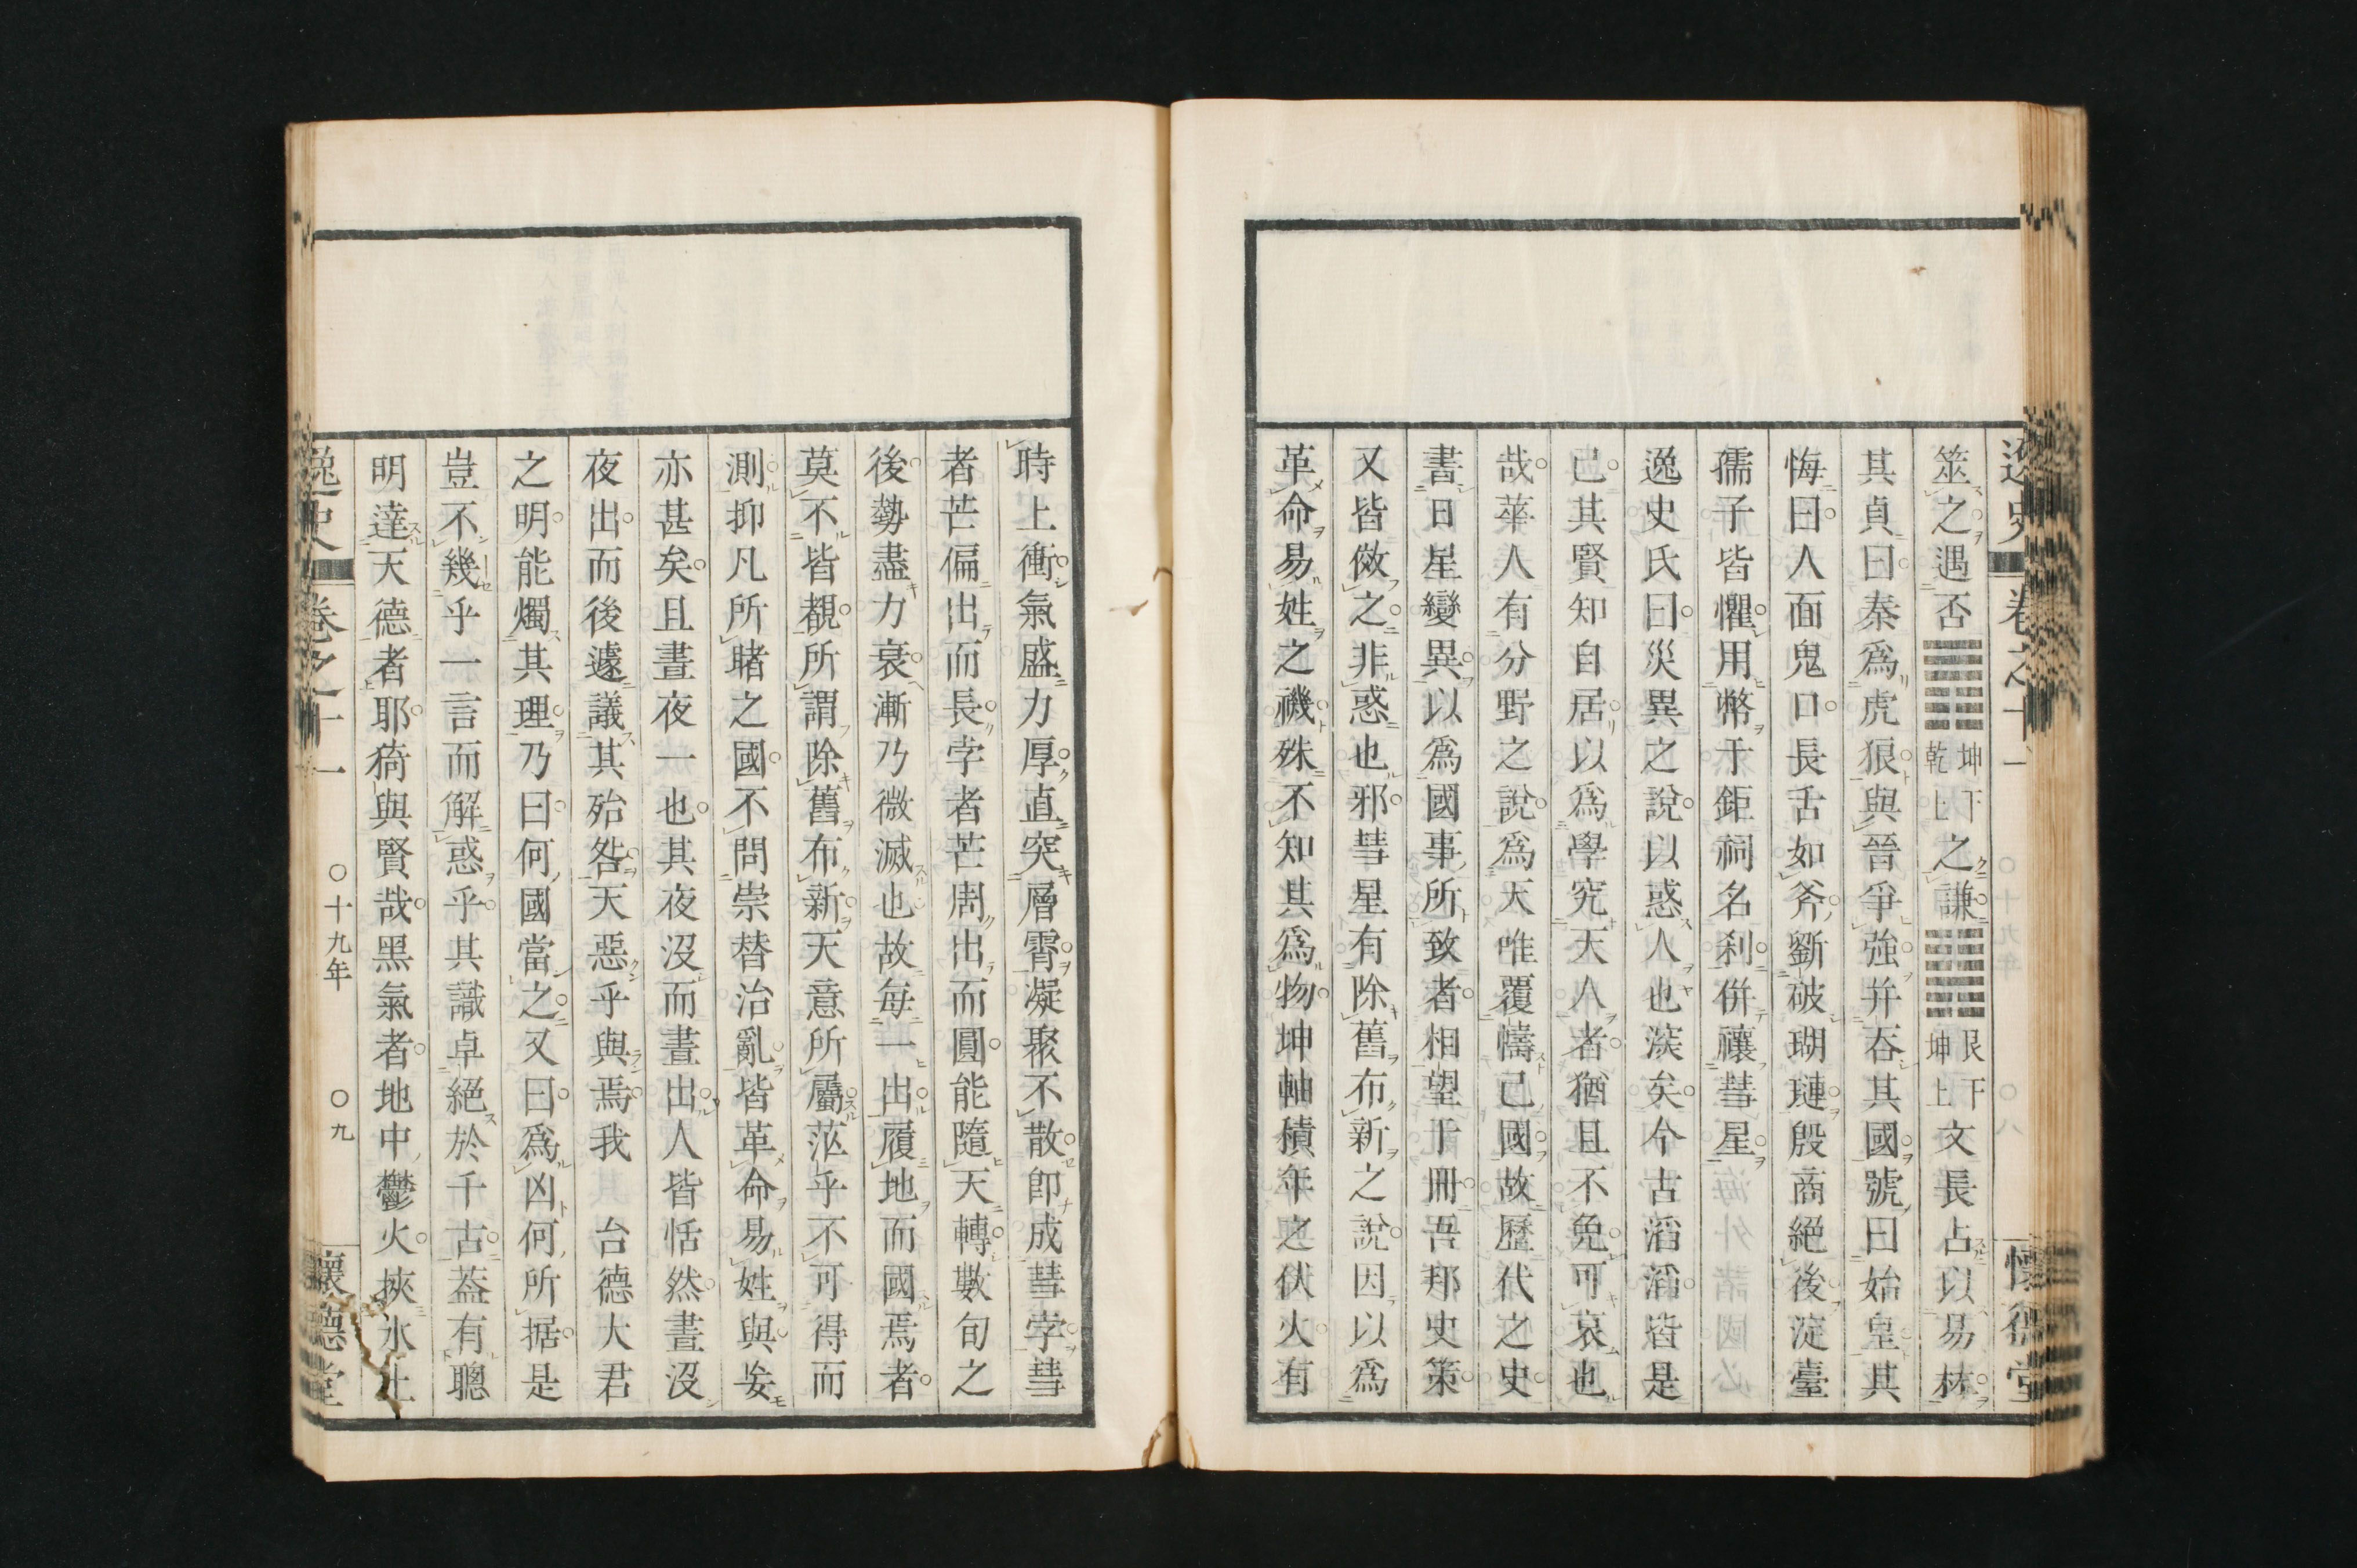 逸史 卷之十一 ○十九年 ○八 懷德堂
筮之遇否䷋坤下乾上之謙䷎艮下坤上文長占以易林
其貞曰秦爲虎狼與晉爭強幷吞其國號曰始皇其
悔曰人面鬼口長舌如斧斲破瑚璉殷商絕後淀臺
孺子皆懼用幣于鉅祠名刹倂禳彗星
逸史氏曰災異之說以惑人也淡矣今古滔滔皆是
已其賢知自居以爲學究天人者猶且不免可哀也
哉華人有分野之說爲天唯覆幬己國故歷代之史
書日星變異以爲國事所致者相望于冊吾邦史策
又皆傚之非惑也邪彗星有除舊布新之說因以爲
革命易姓之禨殊不知其爲物坤軸積年之伏火有
時上衝氣盛力厚直突層霄凝聚不散卽成彗孛彗
者芒偏出而長孛者芒周出而圓能隨天轉數旬之
後勢盡力衰漸乃微滅也故每一出履地而國焉者
莫不皆覩所謂除舊布新天意所屬茫乎不可得而
測抑凡所睹之國不問崇替治亂皆革命易姓與妄
亦甚矣且晝夜一也其夜沒而晝出人皆恬然晝沒
夜出而後遽議其殆咎天惡乎與焉我 台德大君
之明能燭其理乃曰何國當之又曰爲凶何所据是
豈不幾乎一言而解惑乎其識卓絕於千古蓋有聰
明達天德者耶猗與賢哉黑氣者地中鬱火挾水土
逸史 卷之十一 ○十九年 ○九 懷德堂